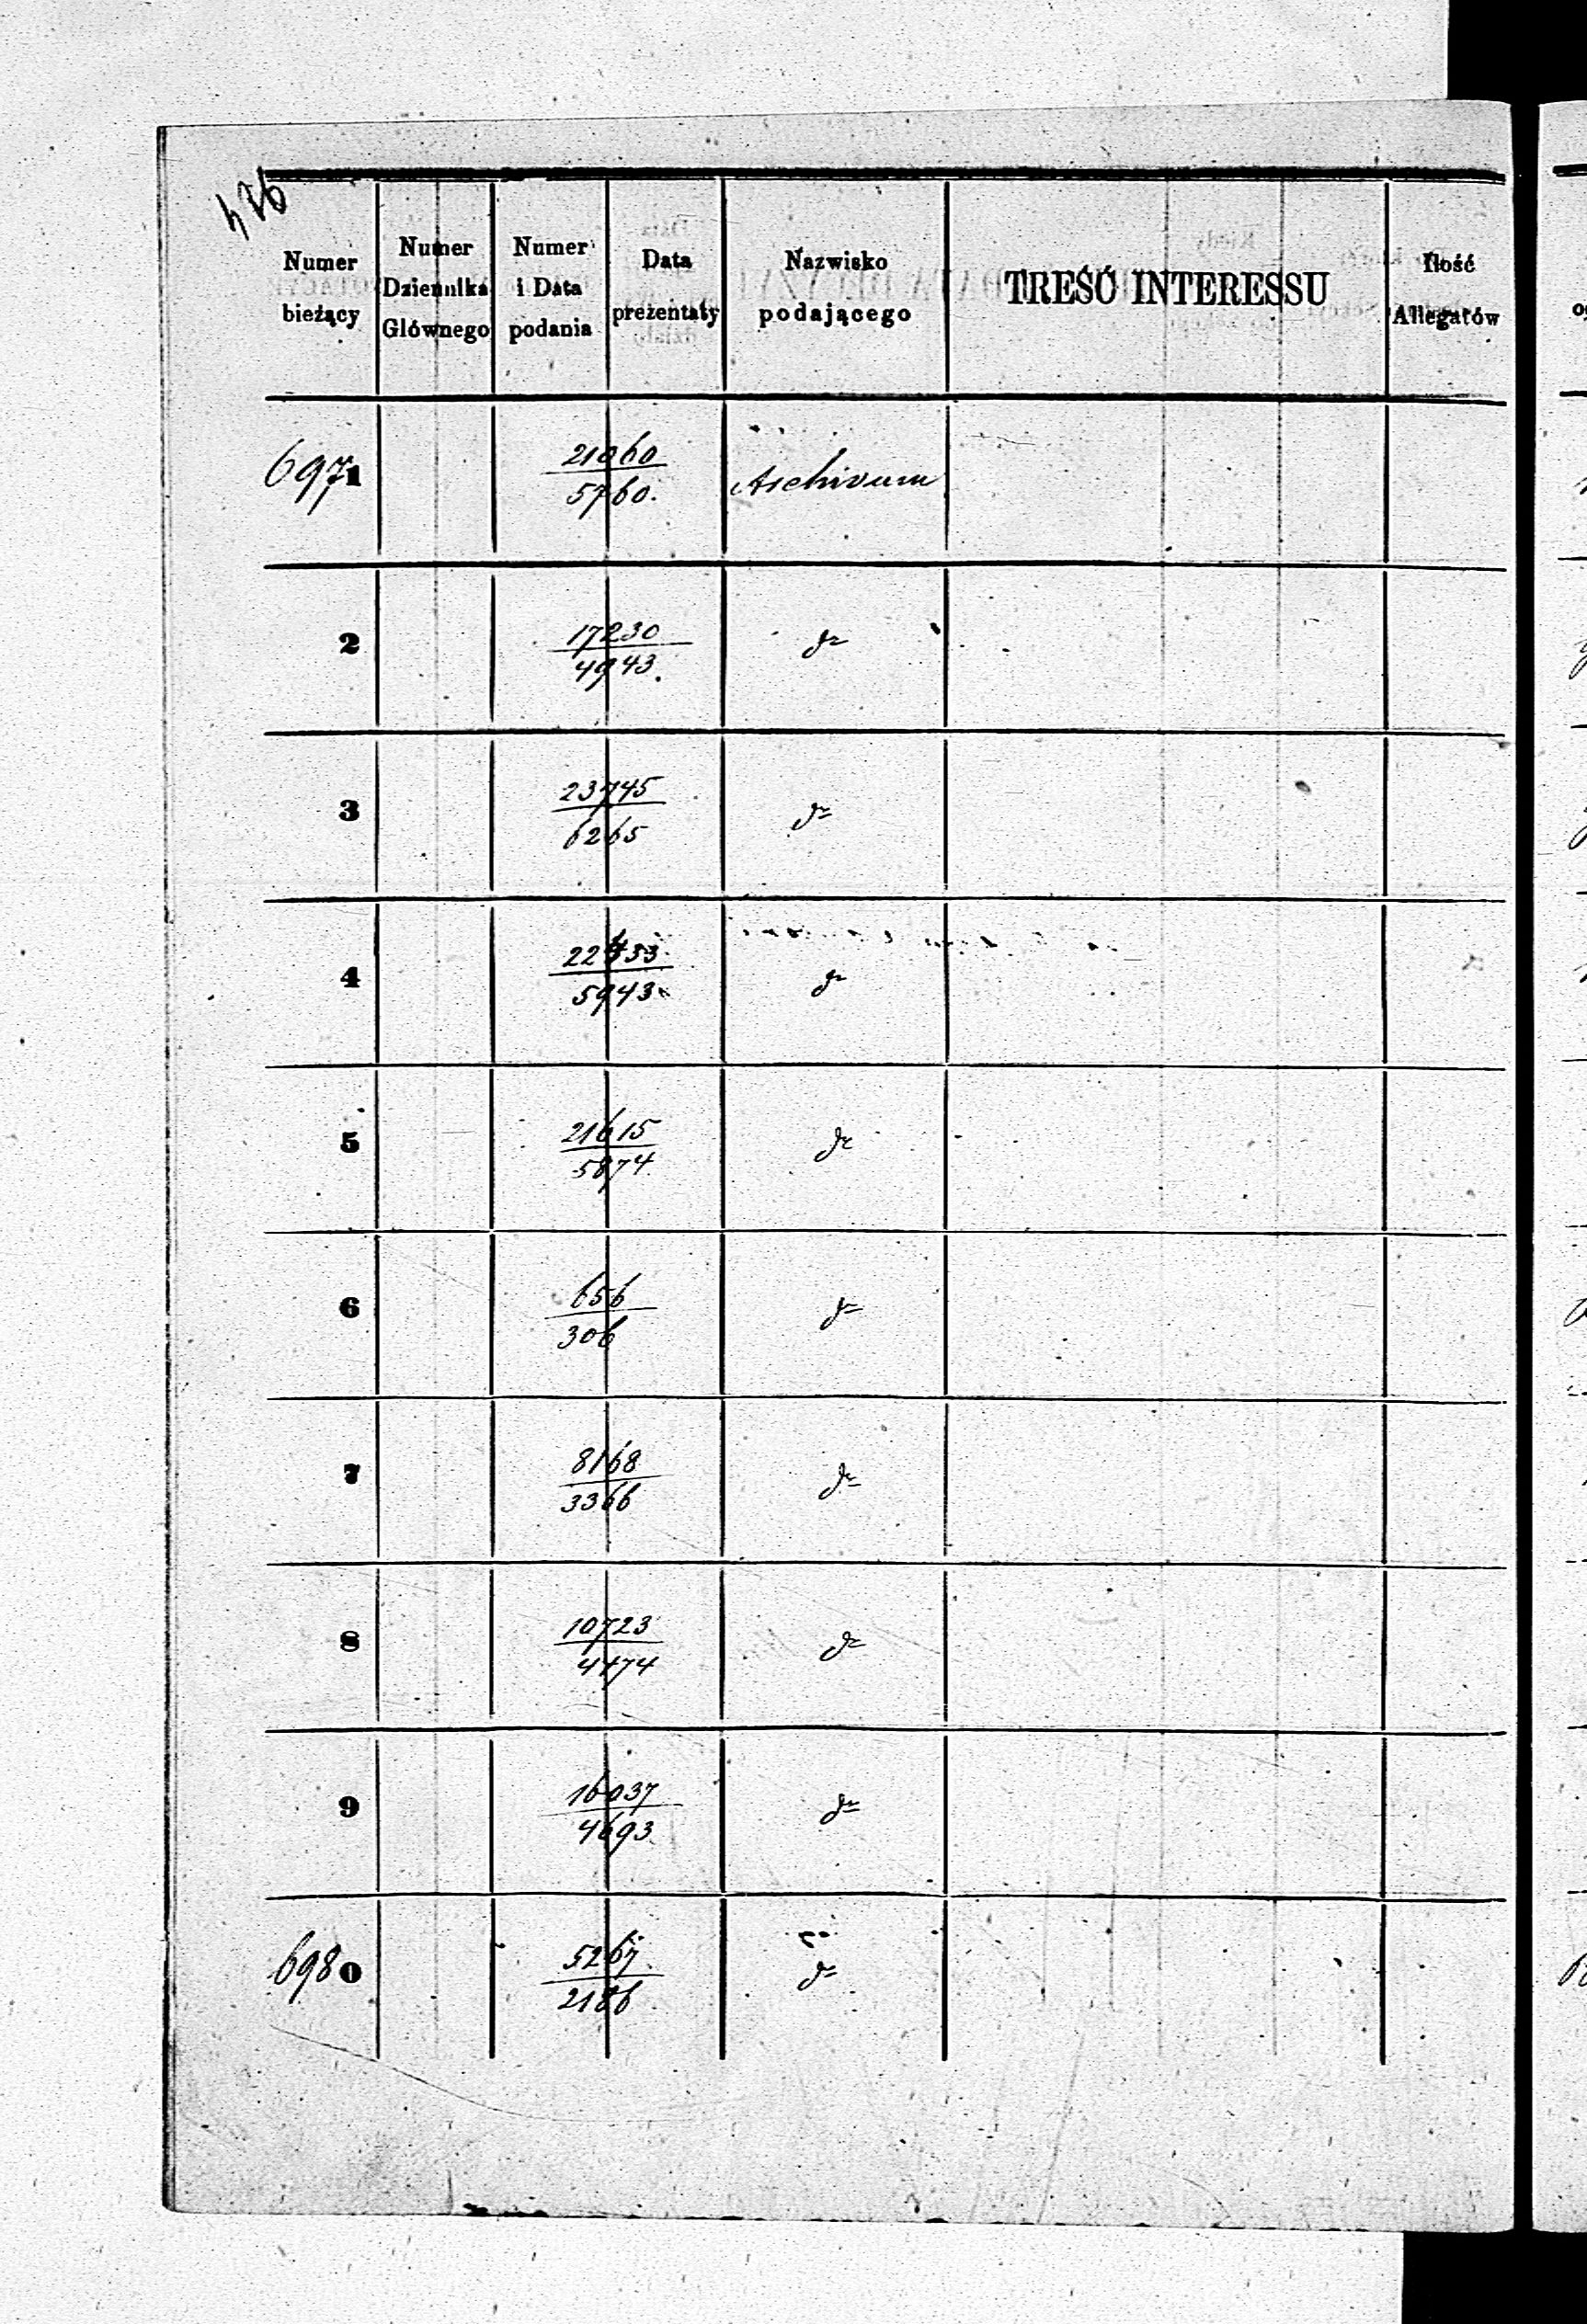 476
Numer bieżący
Numer Dziennika Głównego
Numer i Data podania
Data prezentaty
Nazwisko podającego
TREŚĆ INTERESSU
Ilość Allegatów
6971 21060 Archivum
5760.
2 17230 dº
4943.
3 23745 dº
6265
4 dº
5943
5 21615 dº
5874
6 656 dº
306
7 8168 dº
3366
8 10723 dº
4474
9 16037 dº
4693
6980 5267 dº
2186